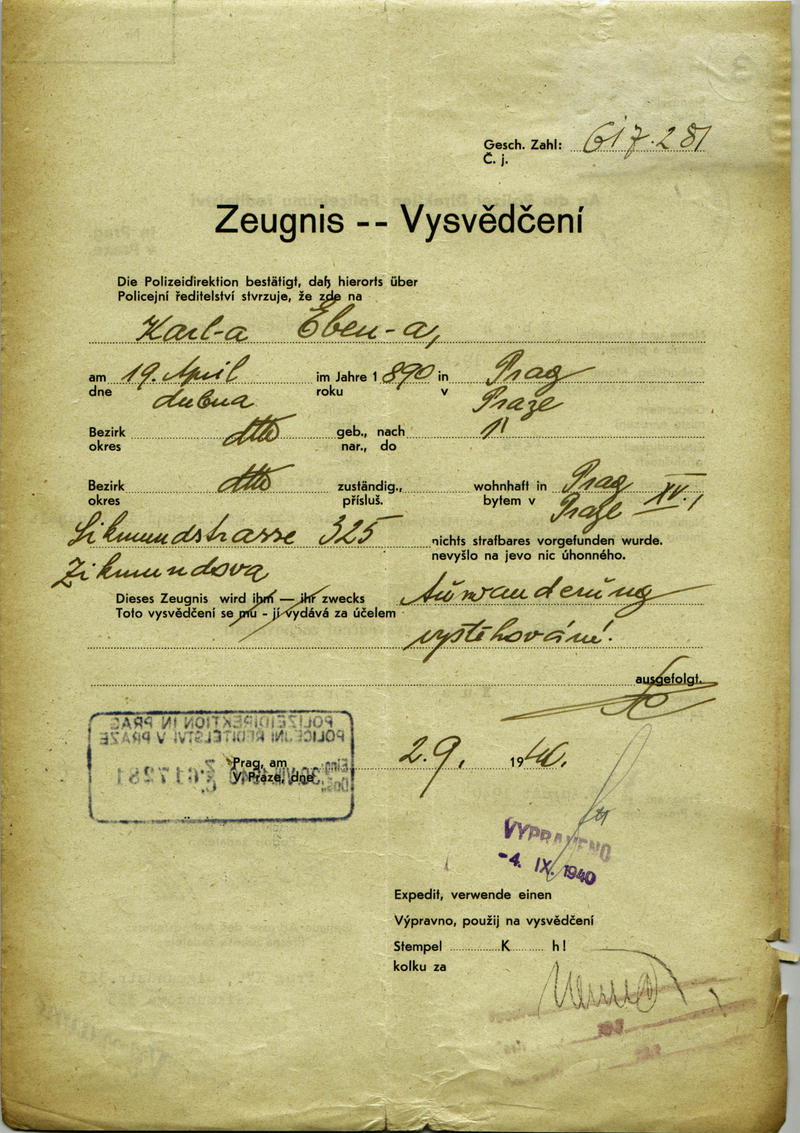 Gesch. Zahl: 617.281
Č. j.
Zeugnis -- Vysvědčení
Die Polizeidirektion bestätigt, daß hierorts über
Policejní ředitelství stvrzuje, že zde na
Karl-a Eben-a,
am 19. April im Jahre 1890 in Prag
dne dubna roku v Praze
Bezirk dtto geb., nach "
okres nar., do
Bezirk dtto zuständig., wohnhaft in Prag XV.
okres přísluš. bytem v Praze
Sikmundstrasse 325 nichts strafbares vorgefunden wurde.
Zikmundova nevyšlo na jevo nic úhonného.
Dieses Zeugnis wird ihm — ihr zwecks Auswanderung
Toto vysvědčení se mu - jí vydává za účelem
vystěhování.
ausgefolgt.
POLIZEIDIREKTION IN PRAG
POLICEJNÍ ŘEDITELSTVÍ V PRAZE
Prag, am 2.9. 1940.
V Praze, dne
617281
VYPRAVENO
-4. IX. 1940
Expedit, verwende einen
Výpravno, použij na vysvědčení
Stempel K h!
kolku za